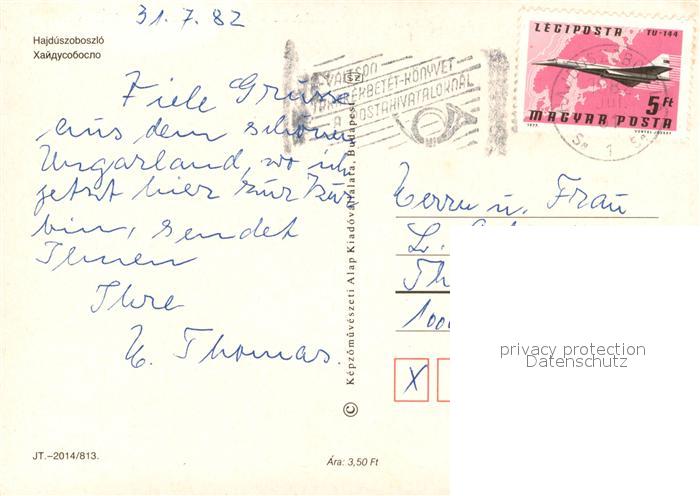 31.7.82
Hajdúszoboszló
Хайдусобосло
Viele Grüsse
aus dem schönen
Ungarland, wo ich
jetzt hier zur Kur
bin, sendet
Ihnen
Ihre
H. Thomas.
JT.–2014/813.
Ára: 3,50 Ft
© Képzőművészeti Alap Kiadóvállalata, Budapest
SZ
VÁLTSON
TAKARÉKBETÉT-KÖNYVET
A POSTAHIVATALOKNÁL
LÉGIPOSTA
TU-144
5Ft
MAGYAR POSTA
1977
VERTEL JÓZSEF
Herrn u. Frau
L.
Th
100
X
privacy protection
Datenschutz